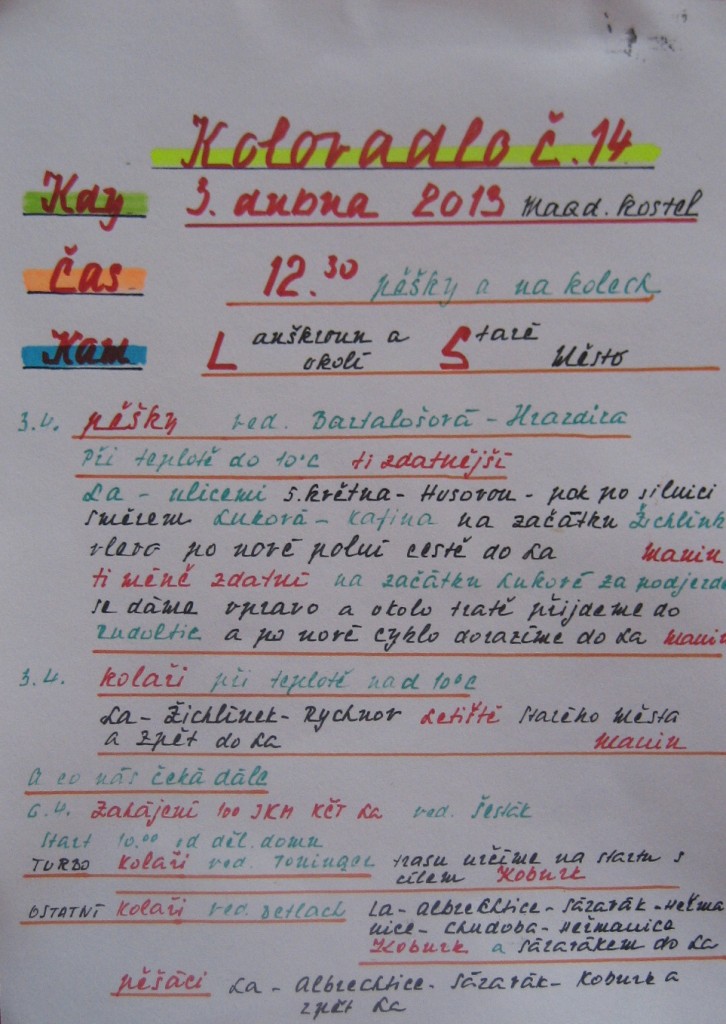 Koloradlo č. 14
Kdy 3. dubna 2013 Magd. kostel
Čas 12.30 pěšky a na kolech
Kam Lanškroun a okolí Staré Město
3.4. pěšky ved. Bartalošová - Hrazdira
Při teplotě do 10°C ti zdatnější
La - ulicemi 5. května - Husovou - pak po silnici
směrem Luková - Kafina na začátku Žichlínk
vlevo po nové polní cestě do La Manin
ti méně zdatní na začátku Lukové za podjezde
se dáme vpravo a okolo tratě přijdeme do
Rudoltic a po nové cyklo dorazíme do La Manin
3.4. kolaři při teplotě nad 10°C
La - Žichlínek - Rychnov Letiště Starého Města
a zpět do La Manin
A co nás čeká dále
6.4. Zahájení 100 JKM KČT La ved. Šesták
Start 10.00 od děl. domu
TURBO kolaři ved. Toninger trasu určíme na startu s
cílem Koburk
OSTATNÍ kolaři ved. Detlach La - Albrechtice - Sázavák - Heřma
nice - Chudoba - Heřmanice
Koburk a Sázavákem do La
pěšáci La - Albrechtice - Sázavák - Koburk a
zpět La